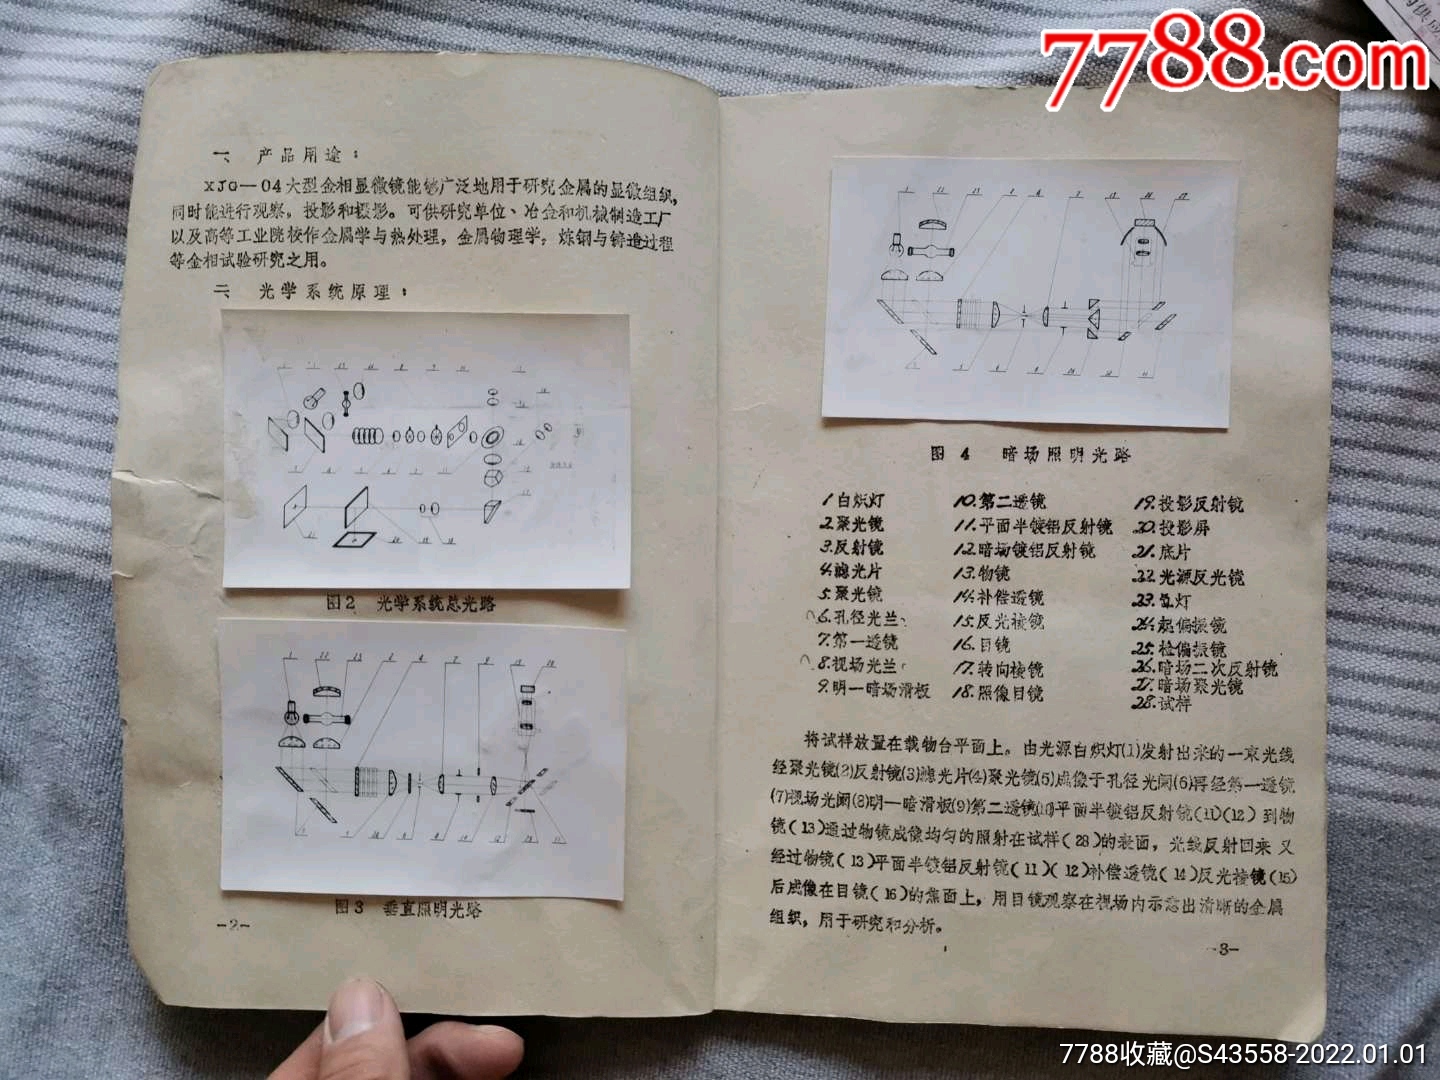 7788.com
一、产品用途：
XJG—04大型金相显微镜能够广泛地用于研究金属的显微组织，
同时能进行观察，投影和摄影。可供研究单位、冶金和机械制造工厂
以及高等工业院校作金属学与热处理，金属物理学，炼钢与铸造过程
等金相试验研究之用。
二、光学系统原理：
图2 光学系统总光路
图3 垂直照明光路
—2—
图 4 暗场照明光路
1 白炽灯
2.聚光镜
3.反射镜
4.滤光片
5.聚光镜
6.孔径光兰
7.第一透镜
8.视场光兰
9.明一暗场滑板
10.第二透镜
11.平面半镀铝反射镜
12.暗场镀铝反射镜
13.物镜
14.补偿透镜
15.反光棱镜
16.目镜
17.转向棱镜
18.照像目镜
19.投影反射镜
20.投影屏
21.底片
22.光源反光镜
23.氙灯
24.起偏振镜
25.检偏振镜
26.暗场二次反射镜
27.暗场聚光镜
28.试样
将试样放置在载物台平面上。由光源白炽灯(1)发射出来的一束光线
经聚光镜(2)反射镜(3)滤光片(4)聚光镜(5)成像于孔径光阑(6)再经第一透镜
(7)视场光阑(8)明—暗滑板(9)第二透镜(10)平面半镀铝反射镜(11)(12)到物
镜(13)通过物镜成像均匀的照射在试样(28)的表面，光线反射回来又
经过物镜(13)平面半镀铝反射镜(11)(12)补偿透镜(14)反光棱镜(15)
后成像在目镜(16)的焦面上，用目镜观察在视场内示意出清晰的金属
组织，用于研究和分析。
—3—
7788收藏@S43558-2022.01.01